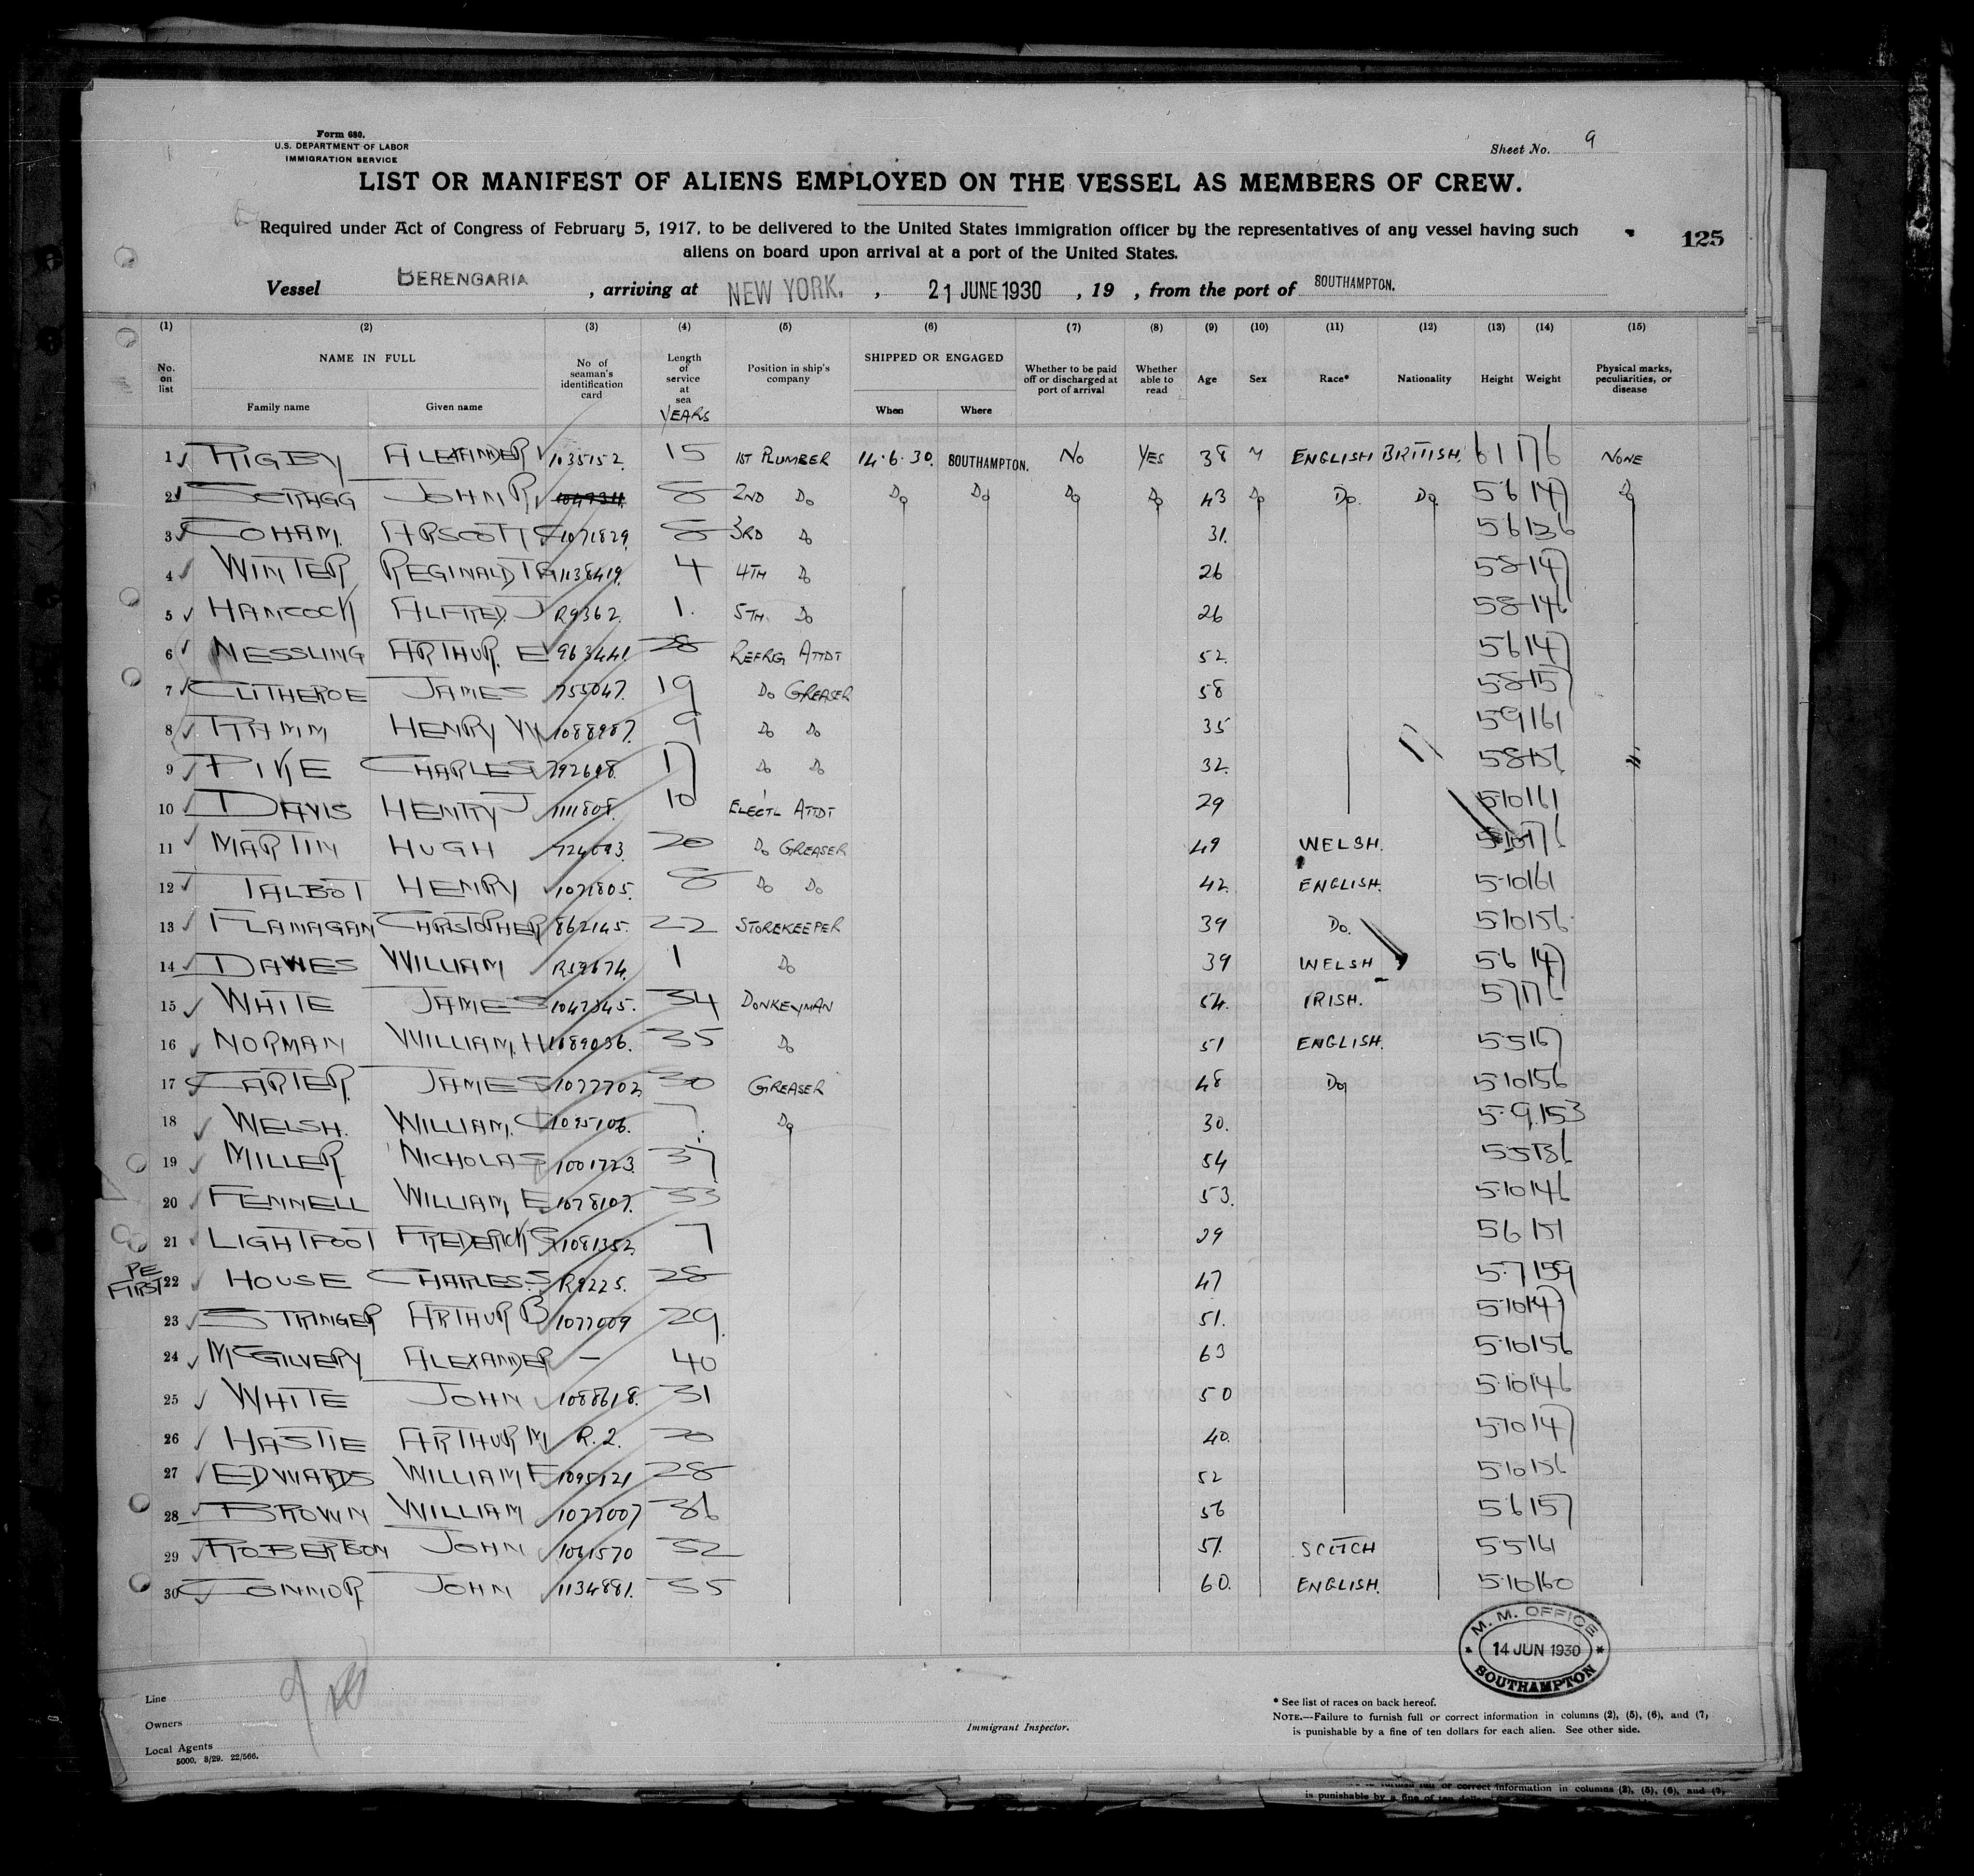 Form 680.
U.S. DEPARTMENT OF LABOR
IMMIGRATION SERVICE
Sheet No. 9
LIST OR MANIFEST OF ALIENS EMPLOYED ON THE VESSEL AS MEMBERS OF CREW.
Required under Act of Congress of February 5, 1917, to be delivered to the United States immigration officer by the representatives of any vessel having such
aliens on board upon arrival at a port of the United States.
125
Vessel BERENGARIA, arriving at NEW YORK., 21 JUNE 1930, 19 , from the port of SOUTHAMPTON.
(1) (2) (3) (4) (5) (6) (7) (8) (9) (10) (11) (12) (13) (14) (15)
No. on list NAME IN FULL Family name Given name No of seaman's identification card Length of service at sea YEARS Position in ship's company SHIPPED OR ENGAGED When Where Whether to be paid off or discharged at port of arrival Whether able to read Age Sex Race* Nationality Height Weight Physical marks, peculiarities, or disease
1 RIGBY ALEXANDER 1035152. 15 1ST PLUMBER 14.6.30. SOUTHAMPTON. NO YES 38 M ENGLISH BRITISH. 6 1 176 NONE
2 SCRAGG JOHN R. 8 2ND Do Do Do Do Do 43 Do Do. Do 5 6 147 Do
3 COHAM ARSCOTT C 1071829. 8 3RD Do 31. 5 6 136
4 WINTER REGINALD T G 1138419. 4 4TH Do 26 5 8 147
5 HANCOCK ALFRED. J R9362. 1. 5TH. Do 26 5 8 146
6 NESSLING ARTHUR. E 963441. 28 REFRG ATTDT 52. 5 6 147
7 CLITHEROE JAMES 755047. 19 Do GREASER 58 5 8 157
8 HAMM HENRY W 1088987. 9 Do Do 35 5 9 161
9 PIKE CHARLES 792698. 17 Do Do 32. 5 8 151.
10 DAVIS HENRY J 1111808. 10 ELECTL ATTDT 29 5 10 161
11 MARTIN HUGH 724693. 20 Do GREASER 49 WELSH. 5 10 176
12 TALBOT HENRY 1071805. 8 Do Do 42. ENGLISH. 5 10 161
13 FLANAGAN CHRISTOPHER 862145. 22 STOREKEEPER 39 Do. 5 10 156
14 DAWES WILLIAM R59674. 1 Do 39 WELSH 5 6 147
15 WHITE JAMES 1047345. 34 DONKEYMAN 54. IRISH. 5 7 176
16 NORMAN WILLIAM. H 1089036. 35 Do 51 ENGLISH. 5 5 167
17 CARTER. JAMES 1077702 30 GREASER 48 Do 5 10 156
18 WELSH. WILLIAM. C 1095106. 7. Do 30. 5. 9. 153
19 MILLER NICHOLAS 1001723. 37 54 5 5 136
20 FENNELL WILLIAM, E 1078107. 33 53. 5 10 146
21 LIGHTFOOT FREDERICK G 1081352. 7 29 5 6 151
PE FIRST 22 HOUSE CHARLES. S R9225. 28 47 5.7 159
23 STRINGER ARTHUR B 1077009 29. 51. 5 10 147
24 McGILVERY ALEXANDER — 40 63 5 10 156
25 WHITE JOHN 1088618. 31 50 5 10 146
26 HASTIE ARTHUR M R.2. 20 40. 5 10 147
27 EDWARDS WILLIAM F 1095121 28 52 5 10 156
28 BROWN WILLIAM 1077007 36 56 5 6 157
29 ROBERTSON JOHN 1061570 32 51. SCOTCH 5 5 161
30 CONNOR. JOHN 1134881. 35 60. ENGLISH. 5 10 160
M. M. OFFICE
14 JUN 1930
SOUTHAMPTON
Line
Owners
Local Agents
5000. 8/29. 22/566.
Immigrant Inspector.
* See list of races on back hereof.
NOTE.—Failure to furnish full or correct information in columns (2), (5), (6), and (7,
is punishable by a fine of ten dollars for each alien. See other side.
or correct information in columns (2), (5), (6), and (7,
is punishable by a fine of ten